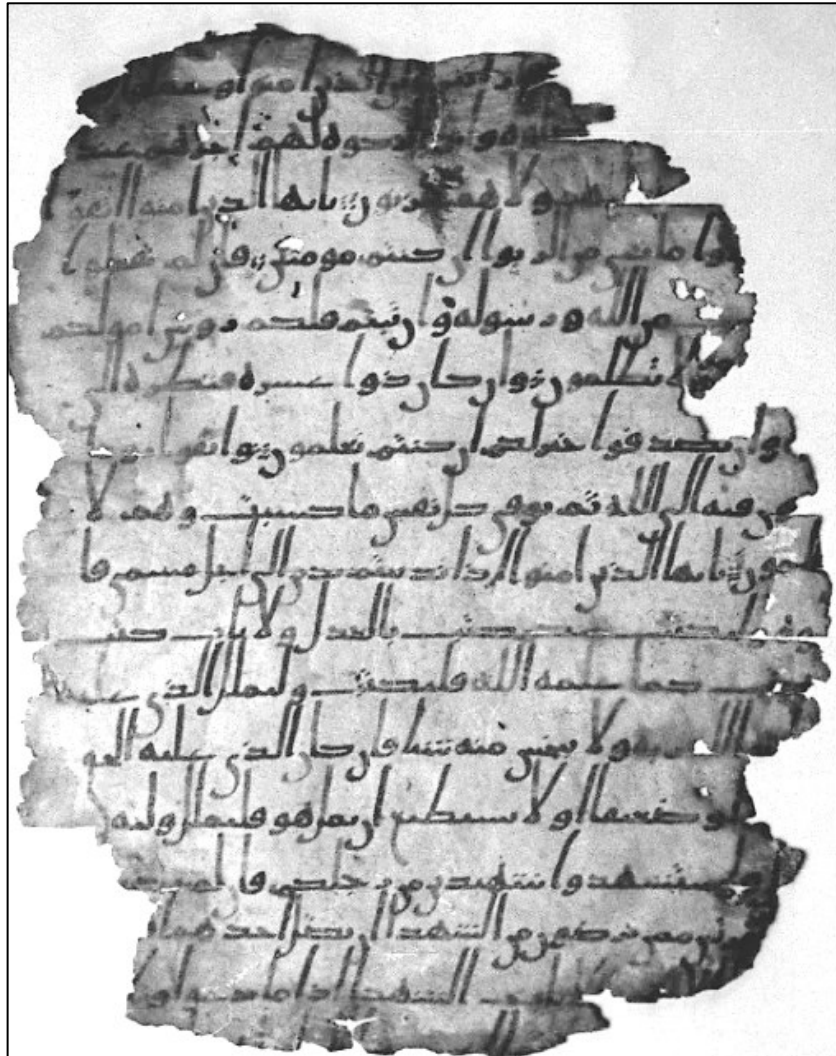 الذين امنوا وعملو
واتوا الزكوه لهم اجرهم عند
هم ولا هم يحزنون يايها الذين امنوا اتقوا
وا ما بقي من الربوا ان كنتم مومنين فان لم تفعلوا
من الله ورسوله وان تبتم فلكم روس امولكم
لا تظلمون وان كان ذوا عسره فنظره الى
وان تصدقوا خير لكم ان كنتم تعلمون واتقوا يوما
ن فيه الى الله ثم توفى كل نفس ما كسبت وهم لا
لمون يايها الذين امنوا اذا تداينتم بدين الى اجل مسمى فا
وليكتب بينكم كتب بالعدل ولا ياب كتب
كتب كما علمه الله فليكتب وليملل الذي عليه
الله ربه ولا يبخس منه شيا فان كان الذي عليه الحق
او ضعيفا او لا يستطيع ان يمل هو فليملل وليه
واستشهدوا شهيدين من رجلكم فان لم
ممن ترضون من الشهدا ان تضل احدهما
ياب الشهدا اذا ما دعوا ولا